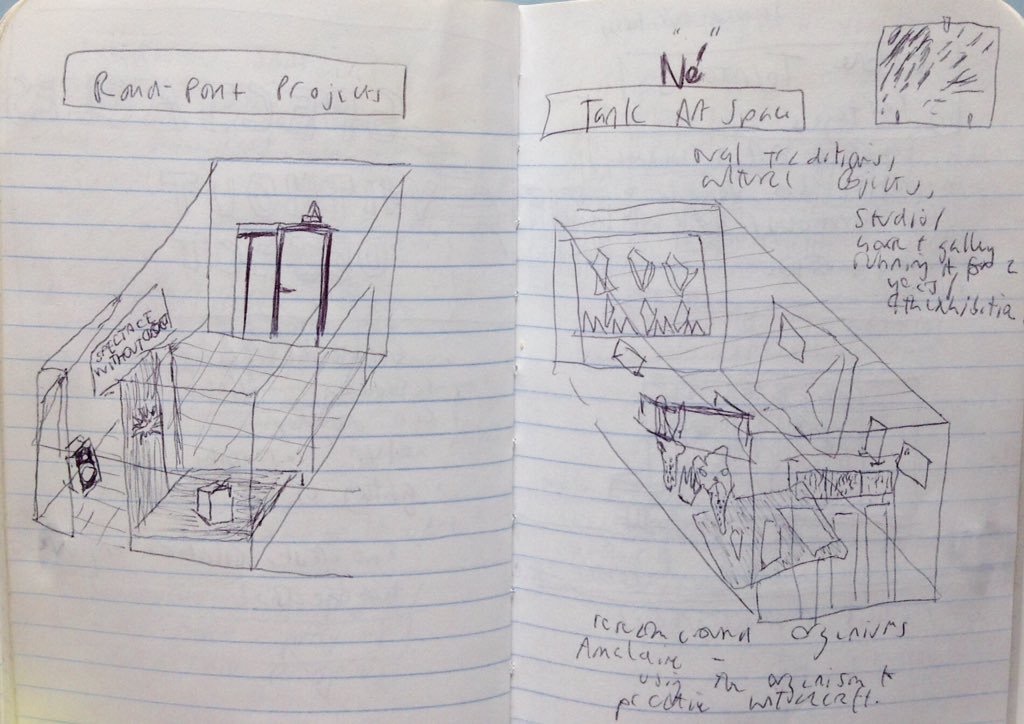 Rond-Point Projects
SPECTACLE
WITHOUT
"Né"
Tank Art Space
traditions,
cultural objects,
Studio/
gallery
running it for 2
years/
exhibition
research around organisms
Anclaire -
using the organism to
practice witchcraft.